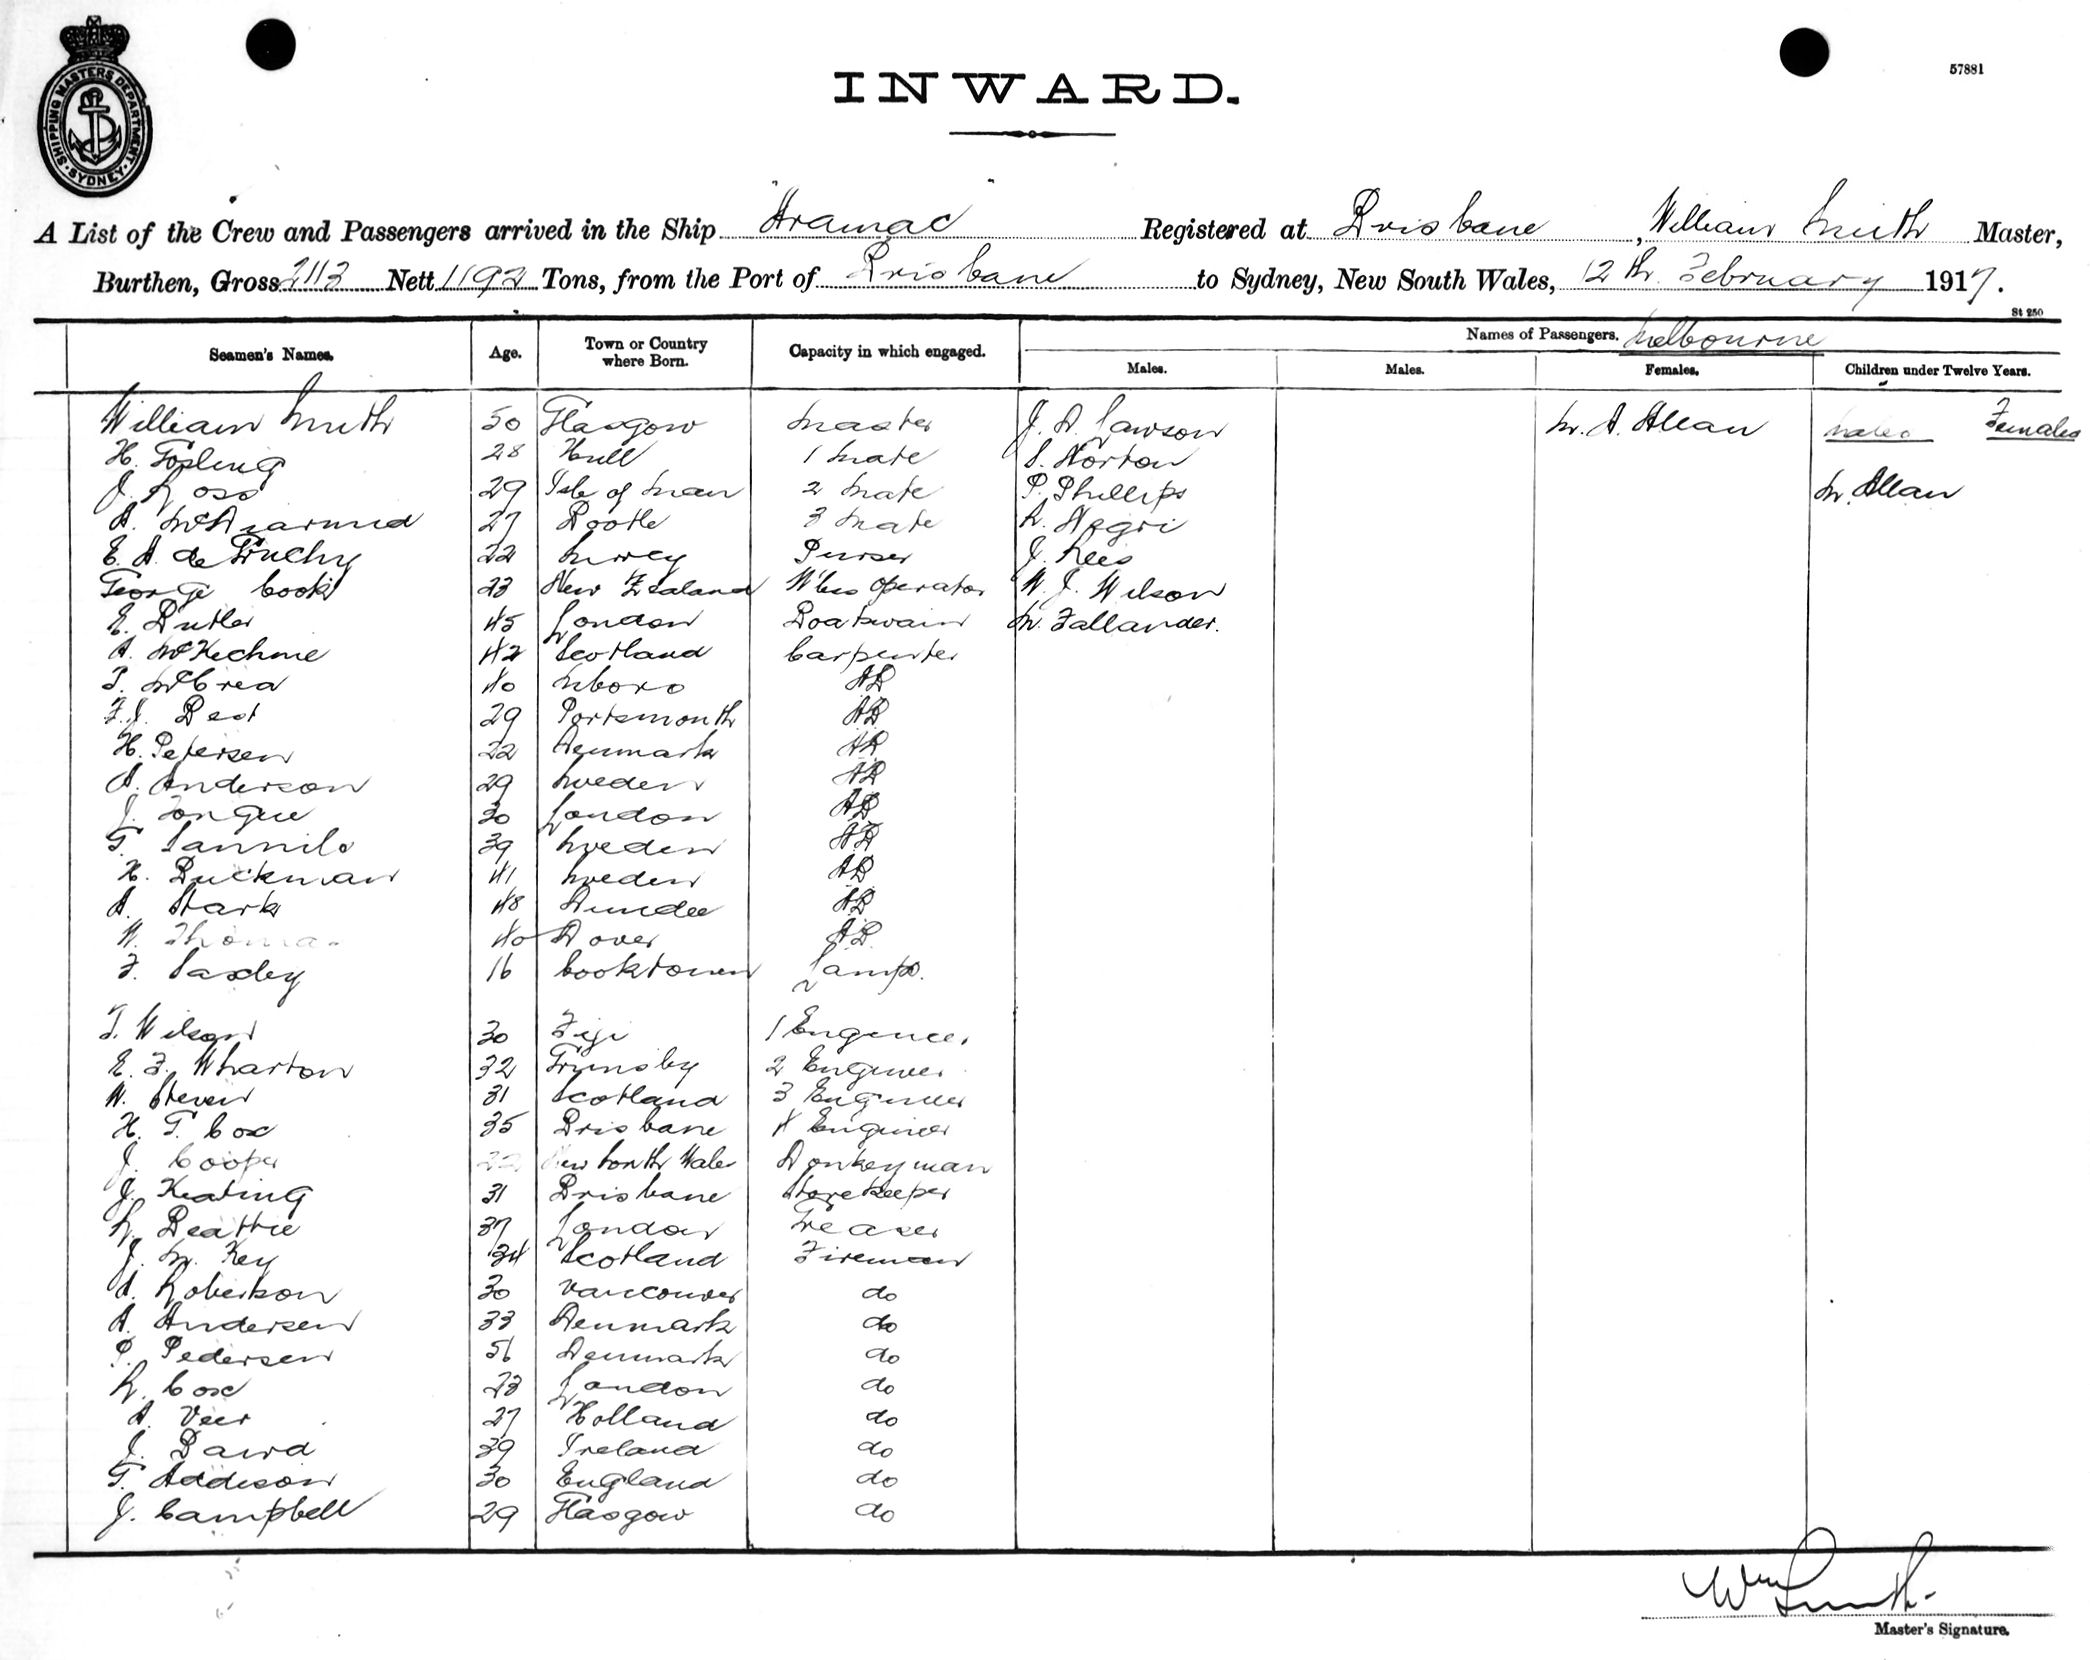 SHIPPING MASTERS DEPARTMENT · SYDNEY ·
57881
INWARD.
A List of the Crew and Passengers arrived in the Ship "Aramac" Registered at Brisbane, William Smith Master,
Burthen, Gross 2113 Nett 1192 Tons, from the Port of Brisbane to Sydney, New South Wales, 12th. February 1917.
St 250
Seamen's Names. Age. Town or Country where Born. Capacity in which engaged. Names of Passengers. Melbourne
Males. Males. Females. Children under Twelve Years.
William Smith 50 Glasgow Master J. A. Lawson M. A. Allan Males Females
H. Gosling 28 Hull 1 Mate S. Norton
J. Ross 29 Isle of Man 2 Mate P. Phillips M. Allan
A. McDiarmid 27 Bootle 3 Mate R. Negri
E. A. de Gruchy 22 Surrey Purser J. Rees
George Cook 23 New Zealand W'less Operator W. J. Wilson
E. Butler 45 London Boatswain M. Fallander.
A. McKechnie 42 Scotland Carpenter
T. McCrea 40 M'boro AB
F. J. Best 29 Portsmouth AB
H. Petersen 22 Denmark AB
A. Anderson 29 Sweden AB
J. Tongue 30 London AB
G. 39 Sweden AB
H. Buckman 41 Sweden AB
A. Stark 48 Dundee AB
W. Thomas 40 Dover AB
F. Saxby 16 Cooktown Lamps.
T. Wilson 30 Fiji 1 Engineer
E. F. Wharton 32 Grimsby 2 Engineer
W. Steven 31 Scotland 3 Engineer
H. G. Cox 35 Brisbane 4 Engineer
J. Cooper 22 New South Wales Donkeyman
J. Keating 31 Brisbane Storekeeper
R. Beattie 37 London Greaser
J. M. Key 34 Scotland Fireman
A. Robertson 30 Vancouver do
A. Andersen 33 Denmark do
P. Pedersen 56 Denmark do
R. Cox 23 London do
A. Veer 27 Holland do
J. Baird 39 Ireland do
G. Addison 30 England do
J. Campbell 29 Glasgow do
Wm Smith
Master's Signature.